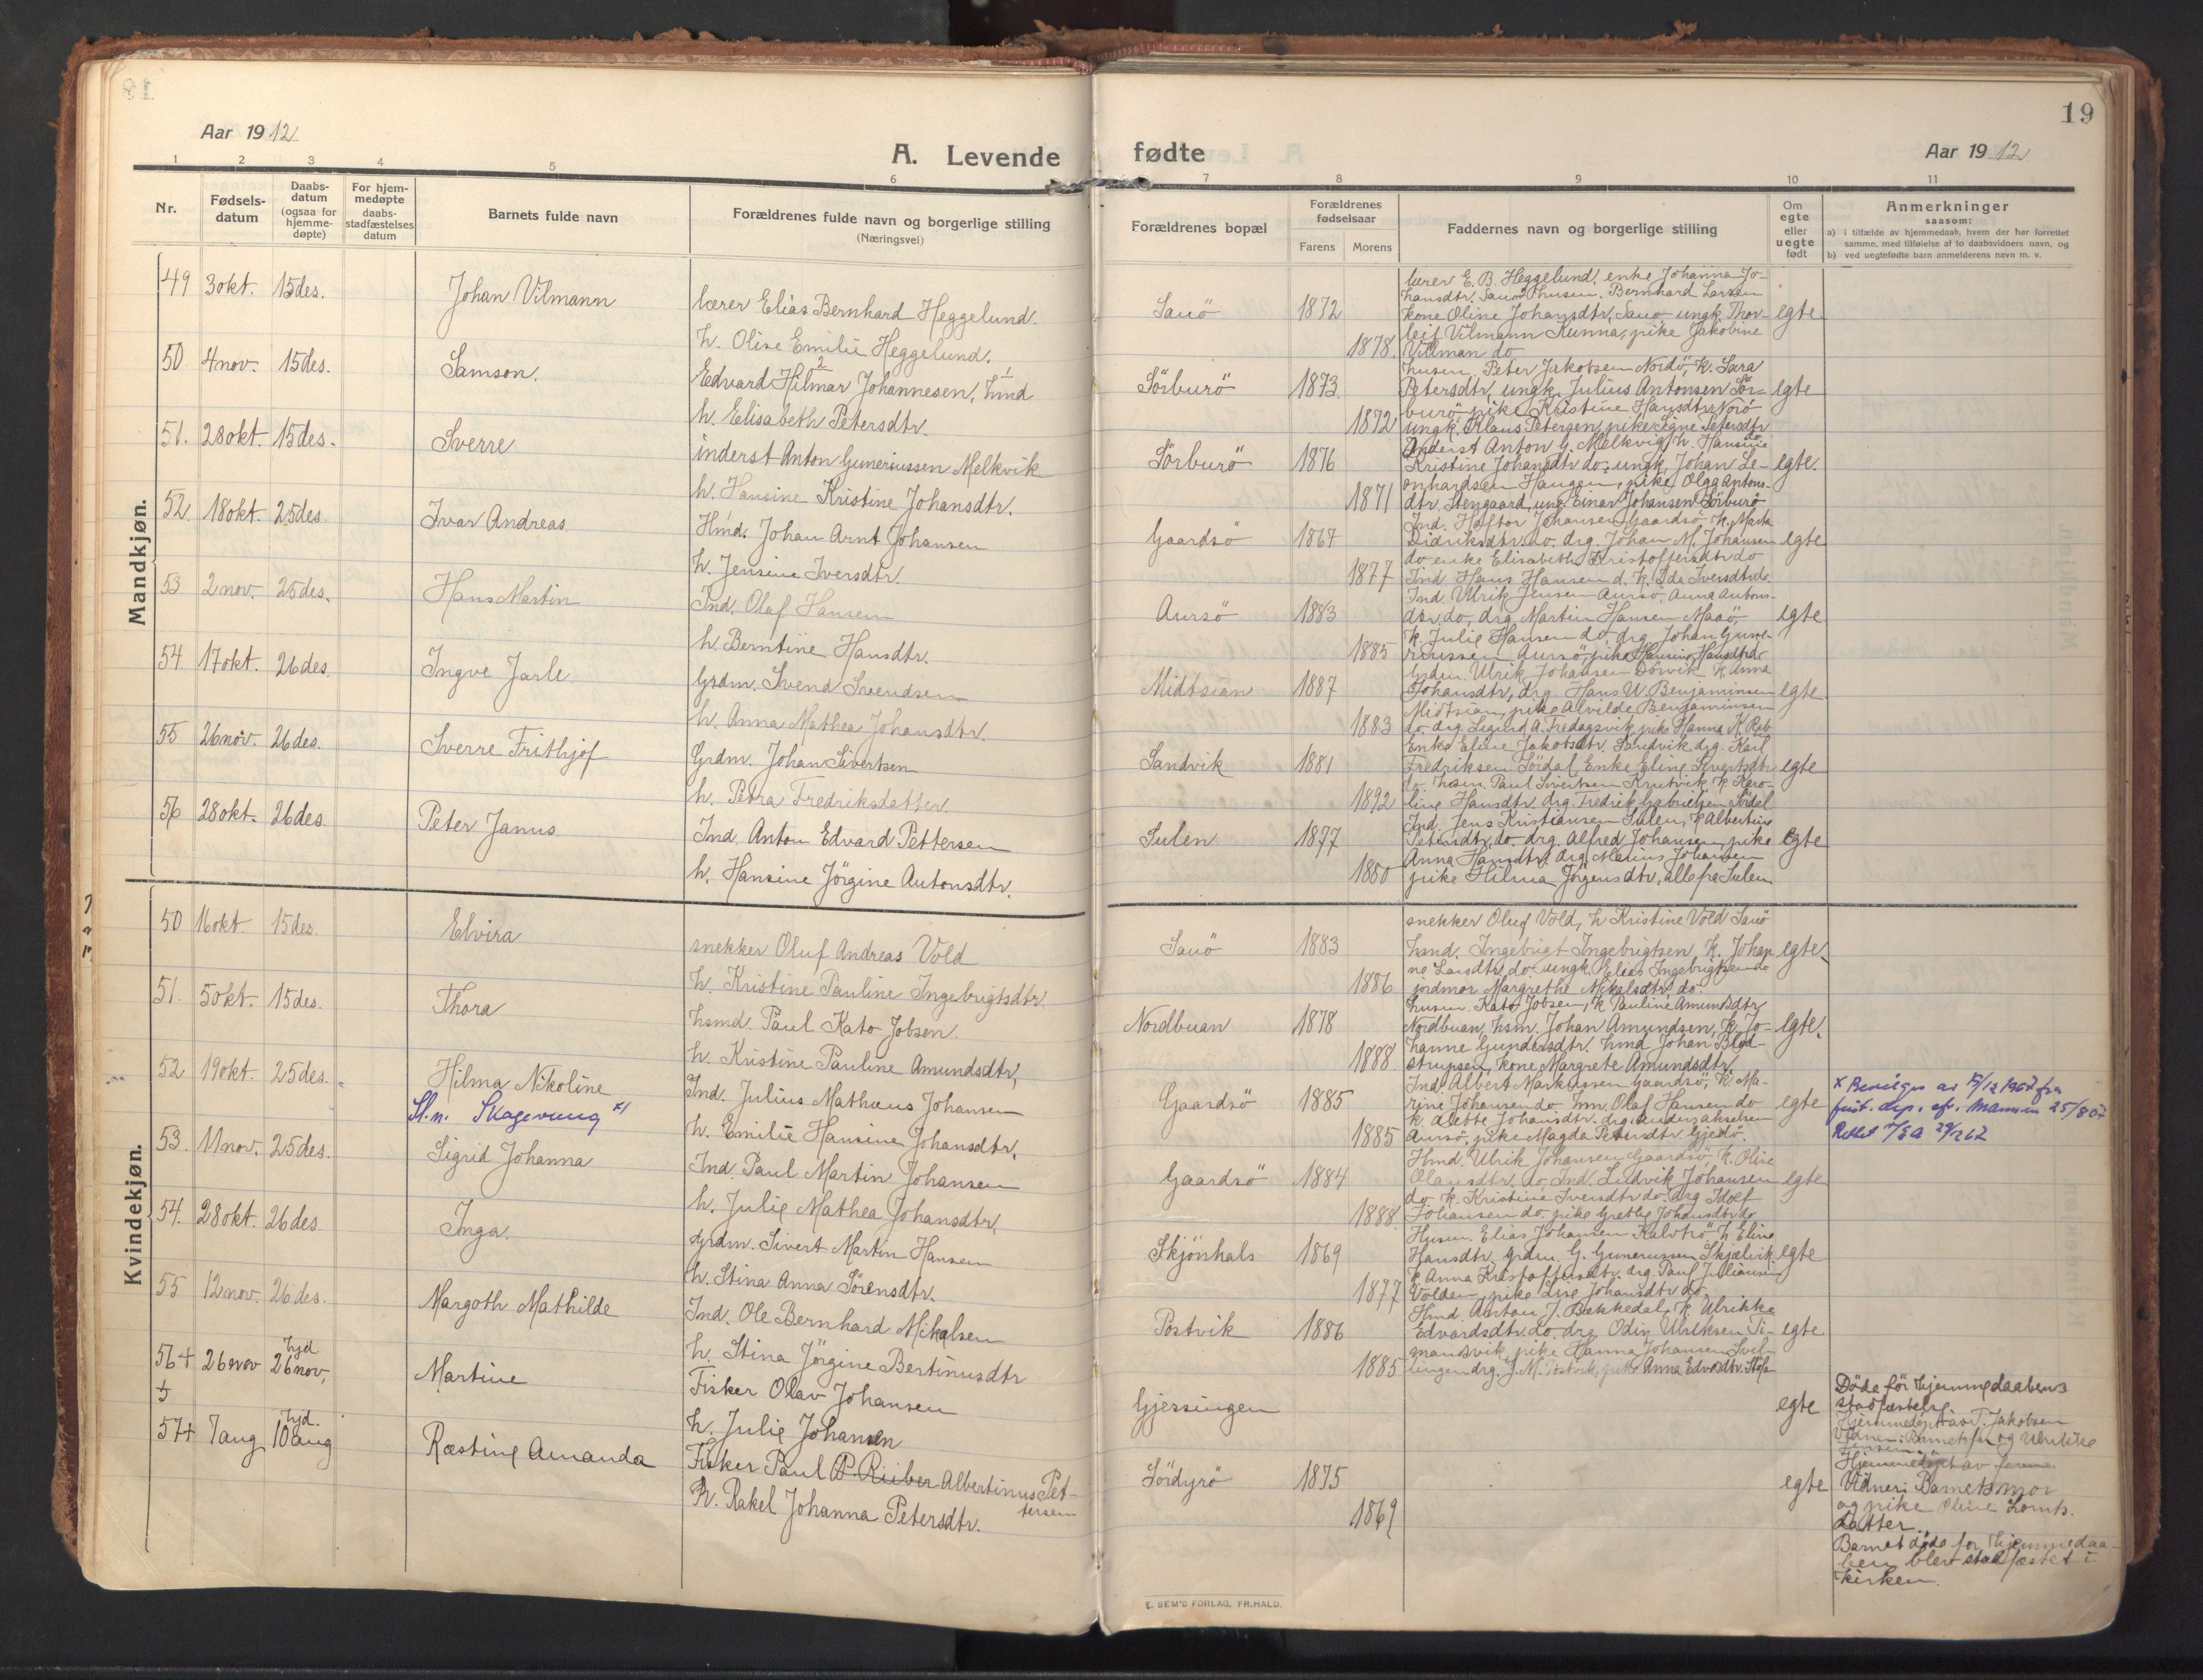 19
Aar 1912
A. Levende fødte
Aar 1912
1 2 3 4 5 6 7 8 9 10 11
Nr.
Fødsels-
datum
Daabs-
datum
(ogsaa for
hjemme-
døpte)
For hjem-
medøpte
daabs-
stadfæstelses
datum
Barnets fulde navn
Forældrenes fulde navn og borgerlige stilling
(Næringsvei)
Forældrenes bopæl
Forældrenes
fødselsaar
Farens Morens
Faddernes navn og borgerlige stilling
Om
egte
eller
uegte
født
Anmerkninger
saasom:
a) i tilfælde av hjemmedaab, hvem der har forrettet
samme, med tilføielse af to daabsvidners navn, og
b) ved uegtefødte barn anmelderens navn m. v.
Mandkjøn.
49 3 okt. 15 des. Johan Vilmann
lærer Elias Bernhard Heggelund.
h. Olise Emilie Heggelund.
Sauö 1872 1878 egte
lærer E. B. Heggelund, enke Johanna Jo-
hansdtr. Sauö husm. Bernhard Larsen
kone Oline Johansdtr, Sauö ungk. Thor-
leif Vilmann Kunna, pike Jakobine
Villman do
50 4 nov. 15 des. Samson.
Edvard Hilmar Johannesen, hmd
h. Elisabeth Petersdtr.
Sörburö 1873. 1872 egte
husm. Peter Jakobsen Nordö, K. Sara
Petersdtr, ungk. Julius Antonsen Sör-
burö, pike Kristine Hansdtr Norö
ungk. Klaus Petersen, pike Signe Petersdtr
51. 28 okt. 15 des. Sverre
inderst Anton Guneriussen Melkvik
h. Hansine Kristine Johansdtr.
Sörburö 1876 1871 egte.
Inderst Anton G. Melkvig, h. Hansine
Kristine Johansdtr do, ungk. Johan Le-
onhardsen Haugen, pike Olga Antons-
dtr Stengaard, ung. Einar Johansen Sörburö
52. 18 okt. 25 des. Ivar Andreas
Hmd. Johan Arnt Johansen
h. Jensine Iversdtr.
Gaardsö 1867 1877 egte
Ind. Haftor Johansen Gaardsö K. Marta
Didriksdtr. do. drg. Johan M. Johansen
do enke Elisabeth Kristoffersdtr do
Ind. Hans Hansen d. K. Ida Iversdtr do.
53 2 nov. 25 des. Hans Martin
Ind. Olaf Hansen
h. Berntine Hansdtr.
Aursö 1883 1885 egte
Ind. Ulrik Jensen Aursö, Anna Antons-
dtr do, drg. Martin Hansen Maaö
K. Julie Hansen do, drg. Johan Gune-
riussen Aursö, pike Hansine Hansdtr do
54. 17 okt. 26 des. Ingve Jarle.
Grdm. Svend Svendsen
h. Anna Mathea Johansdtr.
Midtsian 1887 1883 egte
Grdm. Ulrik Johansen Dörvik K. Anna
Johansdtr, drg. Hans U. Benjaminsen
Midtsian, pike Alvilde Benjaminsen
do. drg. Sigurd A. Fredagsvik, pike Hanna K. Rab
55 26 nov. 26 des. Sverre Frithjof
Grdm. Johan Sivertsen
h. Petra Fredriksdatter
Sandvik 1881 1892 egte
Enke Eline Jakobsdtr. Sandvik drg. Karl
Fredriksen Södal, Enke Eline Sivertsdtr
do. husm. Paul Sivertsen Knutvik, K. Karo-
line Hansdtr. drg. Fredrik Gabrielsen Södal
56 28 okt. 26 des. Peter Janus.
Ind. Anton Edvard Pettersen
h. Hansine Jörgine Antonsdtr.
Sulen 1877 1880 egte
Ind. Jens Kristiansen Sulen, K. Albertine
Petersdtr do. drg. Alfred Johansen, pike
Anna Hansdtr, drg. Marius Johansen
pike Hilma Jörgensdtr, alle fra Sulen
Kvindekjøn.
50 16 okt. 15 des. Elvira
snekker Oluf Andreas Vold
h. Kristine Pauline Ingebrigtsdtr.
Sauö 1883 1886 egte.
snekker Oluf Vold, h Kristine Vold Sauö
hsmd. Ingebrigt Ingebrigtsen, K. Johan-
ne Larsdtr do. ungk. Elias Ingebrigtsen do
jordmor Margrethe Mikalsdtr do.
51. 5 okt. 15 des. Thora
hsmd. Paul Kato Jobsen.
h. Kristine Pauline Amundsdtr,
Nordbuan 1878 1888 egte.
husm. Kato Jobsen, K Pauline Amundsdtr
Nordbuan, hsm. Johan Amundsen, K. Jo-
hanne Gundersdtr. hmd Johan Blad-
strupsen, kone Margrete Amundsdtr.
52 19 okt. 25 des. Hilma Nikoline
Sl. n. Skagevung x/
Ind. Julius Mathæus Johansen
h. Emilie Hansine Johansdtr.
Gaardsö 1885 1885 egte
Ind. Albert Markussen Gaardsö, K. Ma-
rine Johansen do. Inn. Olaf Hansen do
K. Alette Johansdtr. drg. Anders Akselsen
Aursö, pike Magda Petersdtr Gjedö.
53. 11 nov. 25 des. Sigrid Johanna
Ind. Paul Martin Johansen
h. Julie Mathea Johansdtr,
Gaardsö 1884 1888. egte
Hmd. Ulrik Johansen Gaardsö, K. Olise
Olausdtr. do, Ind. Ludvik Johansen
do K. Kristine Iversdtr do. drg Idolf
Johansen do, pike Grethe Johansdtr do
54. 28 okt. 26 des. Inga.
Grdm. Sivert Martin Hansen
h. Stina Anna Sörensdtr.
Skjönhals 1869 1877 egte
Husm. Elias Johansen Kalvhö K Eline
Hansdtr, grdm. G. Gunerussen Skjælvik
K. Anna Kristoffersdtr. drg. Paul Juliansen
Volden, pike Lise Johansdtr do,
55 12 nov. 26 des. Margoth Mathilde
Ind. Ole Bernhard Mikalsen
h. Stina Jörgine Bertinusdtr
Postvik 1886 1885 egte
Hmd. Anton J. Bekkedal, K Ulrikke
Edvardsdtr do. drg. Odin Ulriksen Ti-
mansvik, pike Hanna Johansen Svel-
lingen drg. J. M. Postvik, pike Anna Edvdtr.
56+ 26 nov hjd 26 nov. Martine
Fisker Olav Johansen
h. Julie Johansen
Gjessingen egte
57+ 7 aug hjd. 10 aug Ræstine Amanda
Fisker Paul P. Riiber Albertinus Pet-
tersen
h. Rakel Johanna Petersdtr.
Sördyrö 1875 1869 egte
x Beviges av 7/12 1967 fra
just. dep.
Döde för hjemmedaabens
stadfæstelse.
Hjemmedøpt av T. Jakobsen
Vidner: Barnets far og Ulrikke
Jensen
Hjemmedöpt av faren
Vidner: Barnets mor
og pike Oline Lornts.
datter.
Barnet döde för hjemmedaa-
ben blev stadfæstet i
kirken.
E. SEM'S FORLAG, FR.HALD.